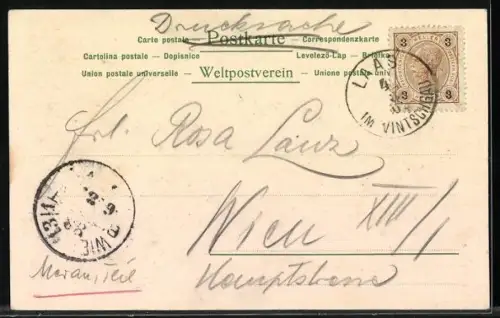 Drucksache
Carte postale — Postkarte — Correspondenzkarte
Cartolina postale — Dopisnice Levelező-Lap —
Union postale universelle — Weltpostverein — Unione postale
3 3
LAAS
IM VINTSCHGAU
Frl. Rosa Lanz
Wien XIII/1
Hauptstrasse
WIE
Meran, Teil